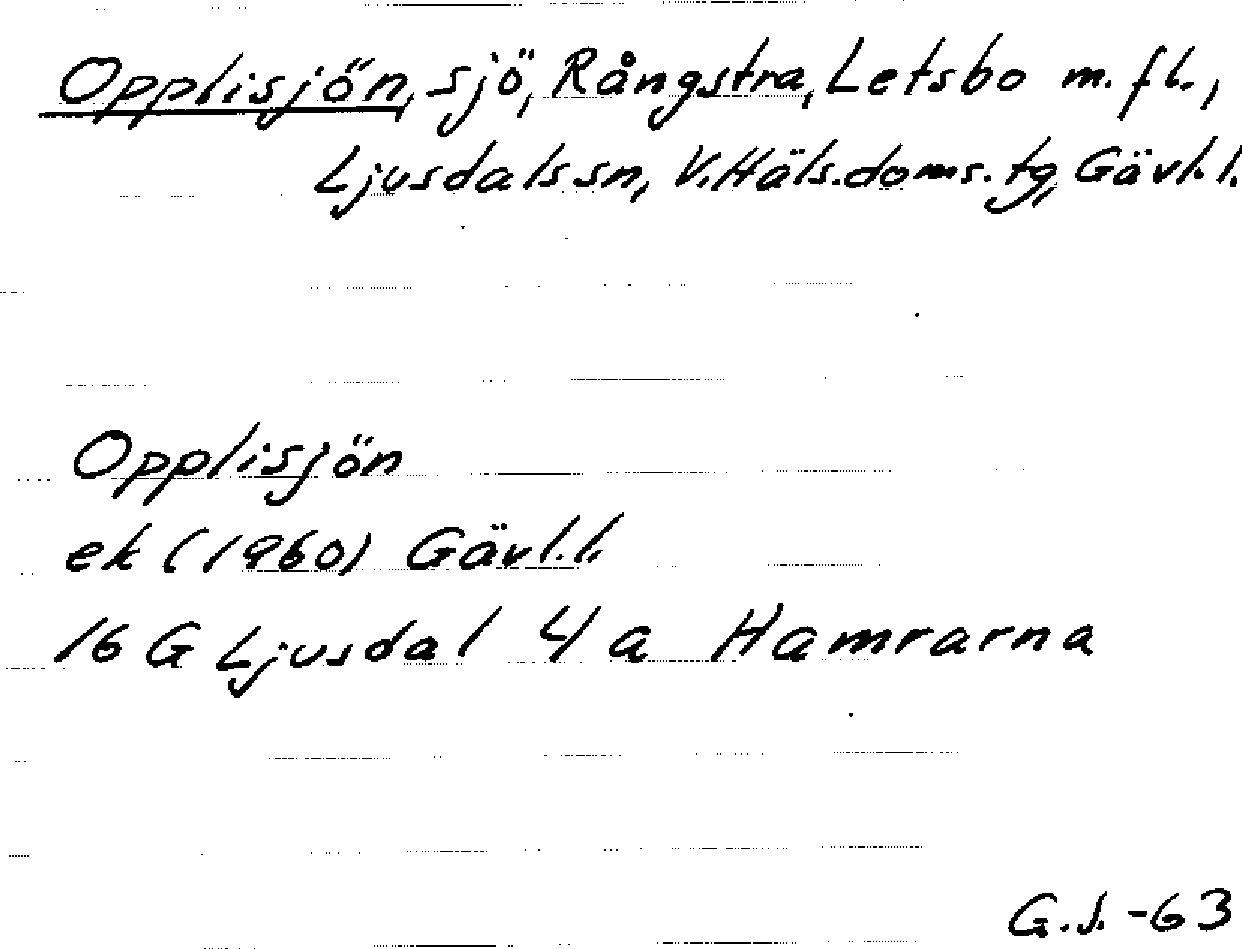 Opplisjön, sjö, Rångstra, Letsbo m. fl.,
Ljusdals sn, V. Häls. doms. tg, Gävl. l.
Opplisjön
ek (1960) Gävl. l.
16 G Ljusdal 4 a Hamrarna
G. S. -63